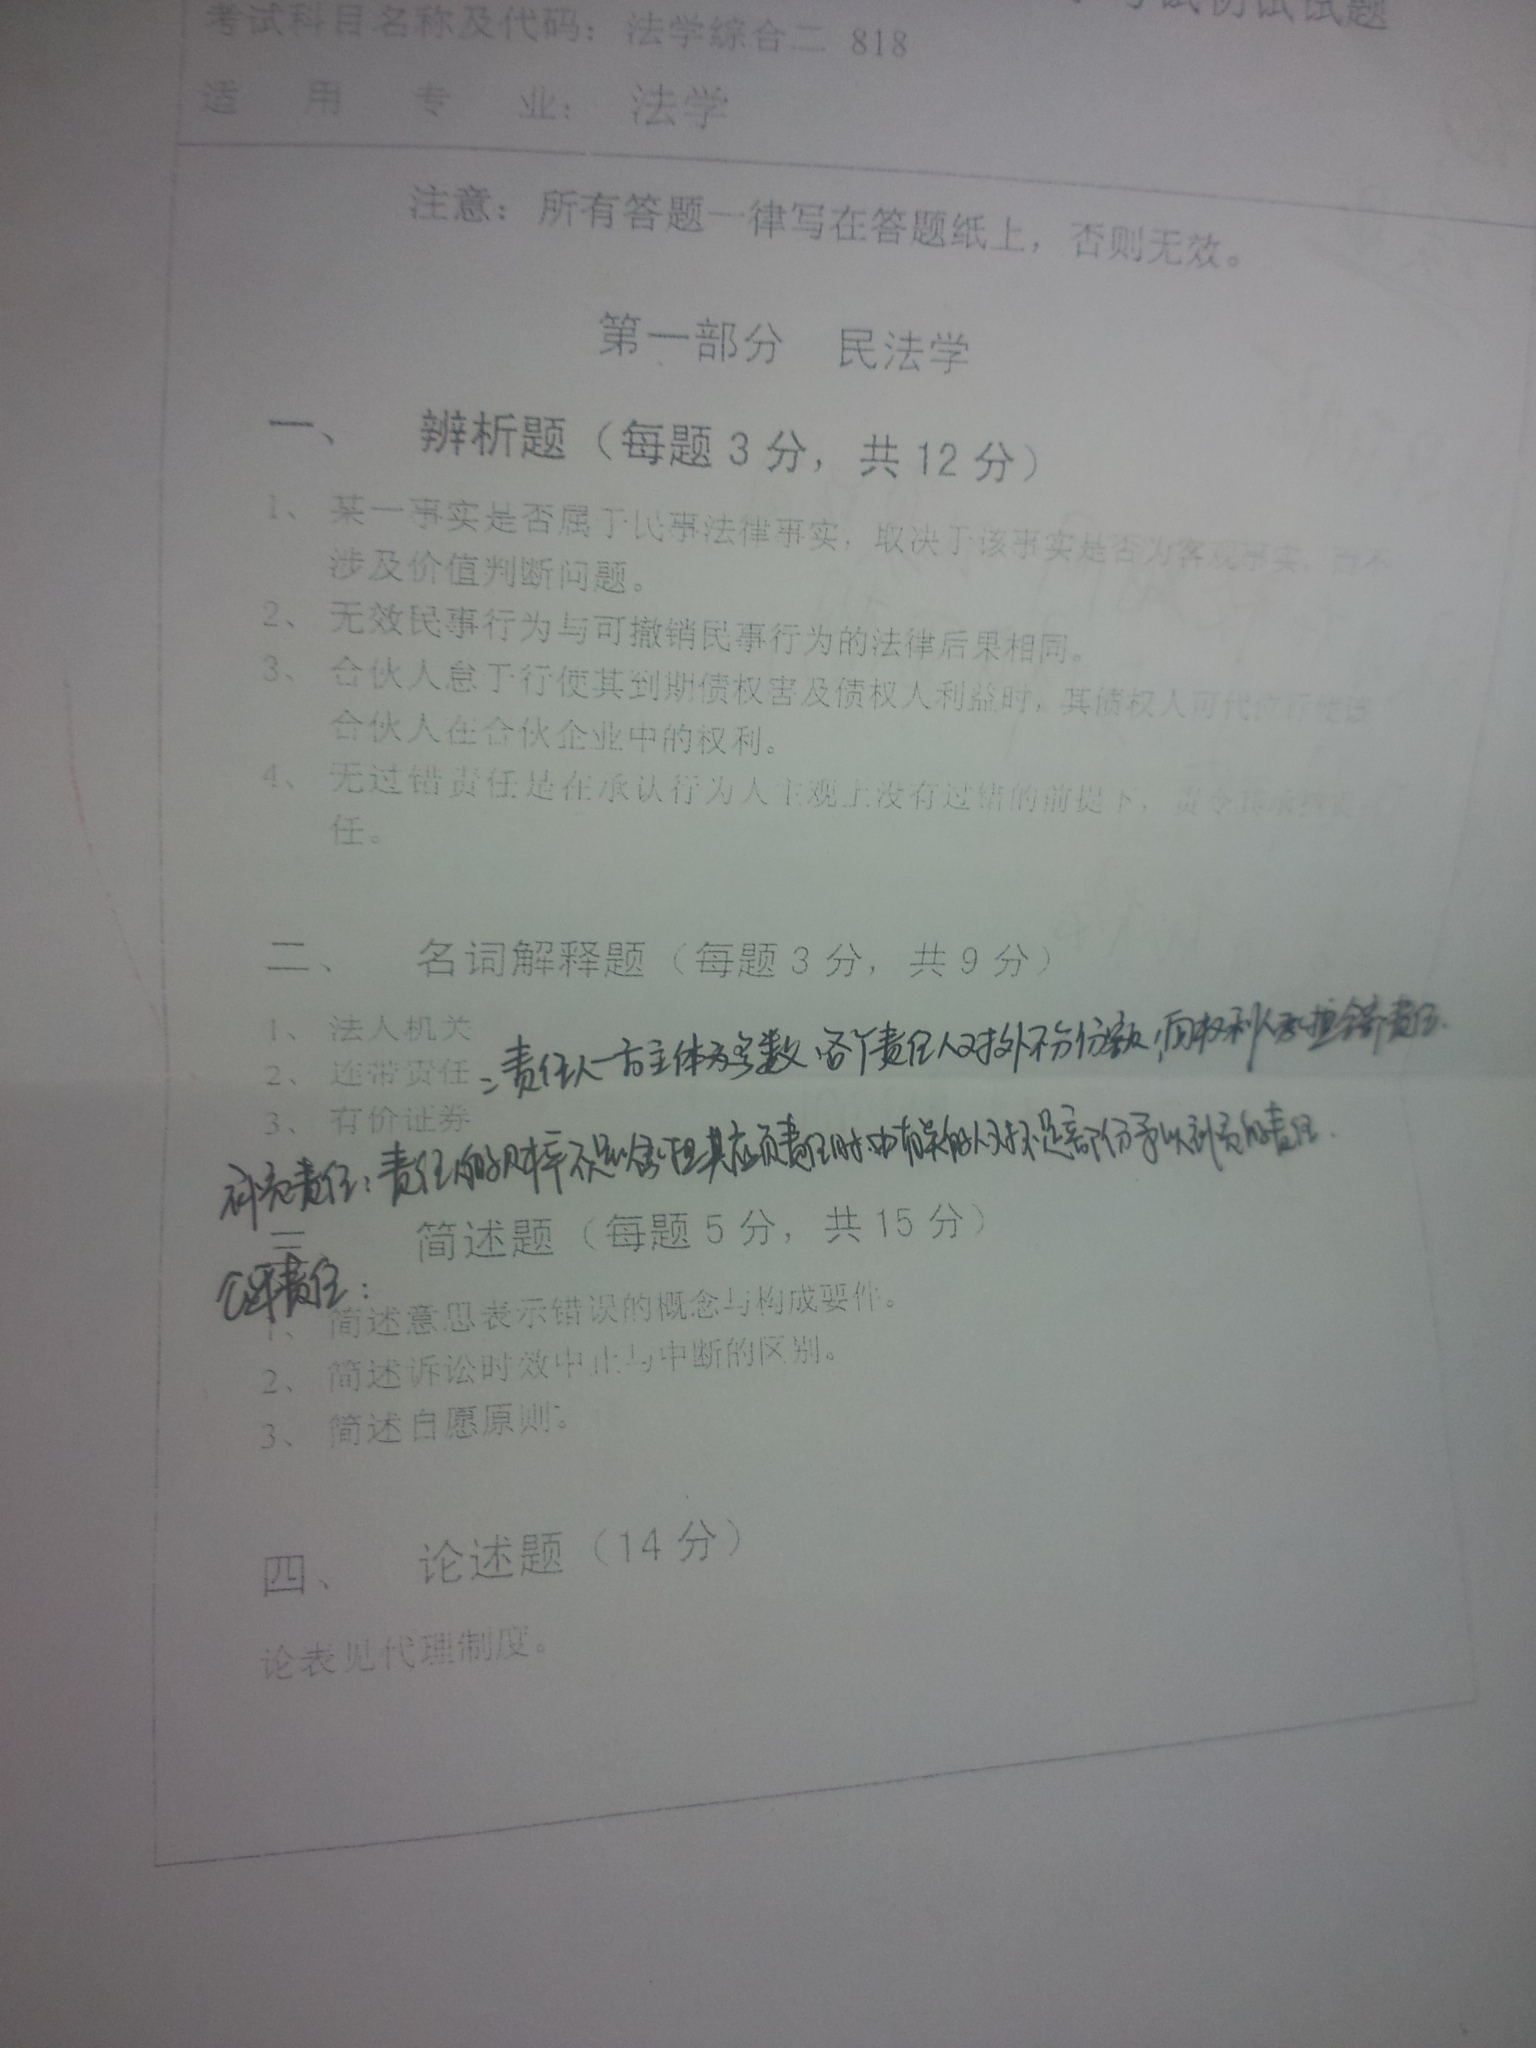 考试初试试题
考试科目名称及代码：法学综合二 818
适 用 专 业： 法学
注意：所有答题一律写在答题纸上，否则无效。
第一部分 民法学
一、 辨析题（每题3分，共12分）
1、某一事实是否属于民事法律事实，取决于该事实是否为客观事实，而不
涉及价值判断问题。
2、无效民事行为与可撤销民事行为的法律后果相同。
3、合伙人怠于行使其到期债权害及债权人利益时，其债权人可代位行使该
合伙人在合伙企业中的权利。
4、无过错责任是在承认行为人主观上没有过错的前提下，责令其承担责
任。
二、 名词解释题（每题3分，共9分）
1、法人机关
2、连带责任：责任人一方主体为多数、各个责任人对外不分份额，向权利人承担全部责任.
3、有价证券
补充责任：责任人的财产不足以承担其应负责任时，由有关的人对不足部份予以补充的责任.
三、 简述题（每题5分，共15分）
责任：
1、简述意思表示错误的概念与构成要件。
2、简述诉讼时效中止与中断的区别。
3、简述自愿原则。
四、 论述题（14分）
论表见代理制度。